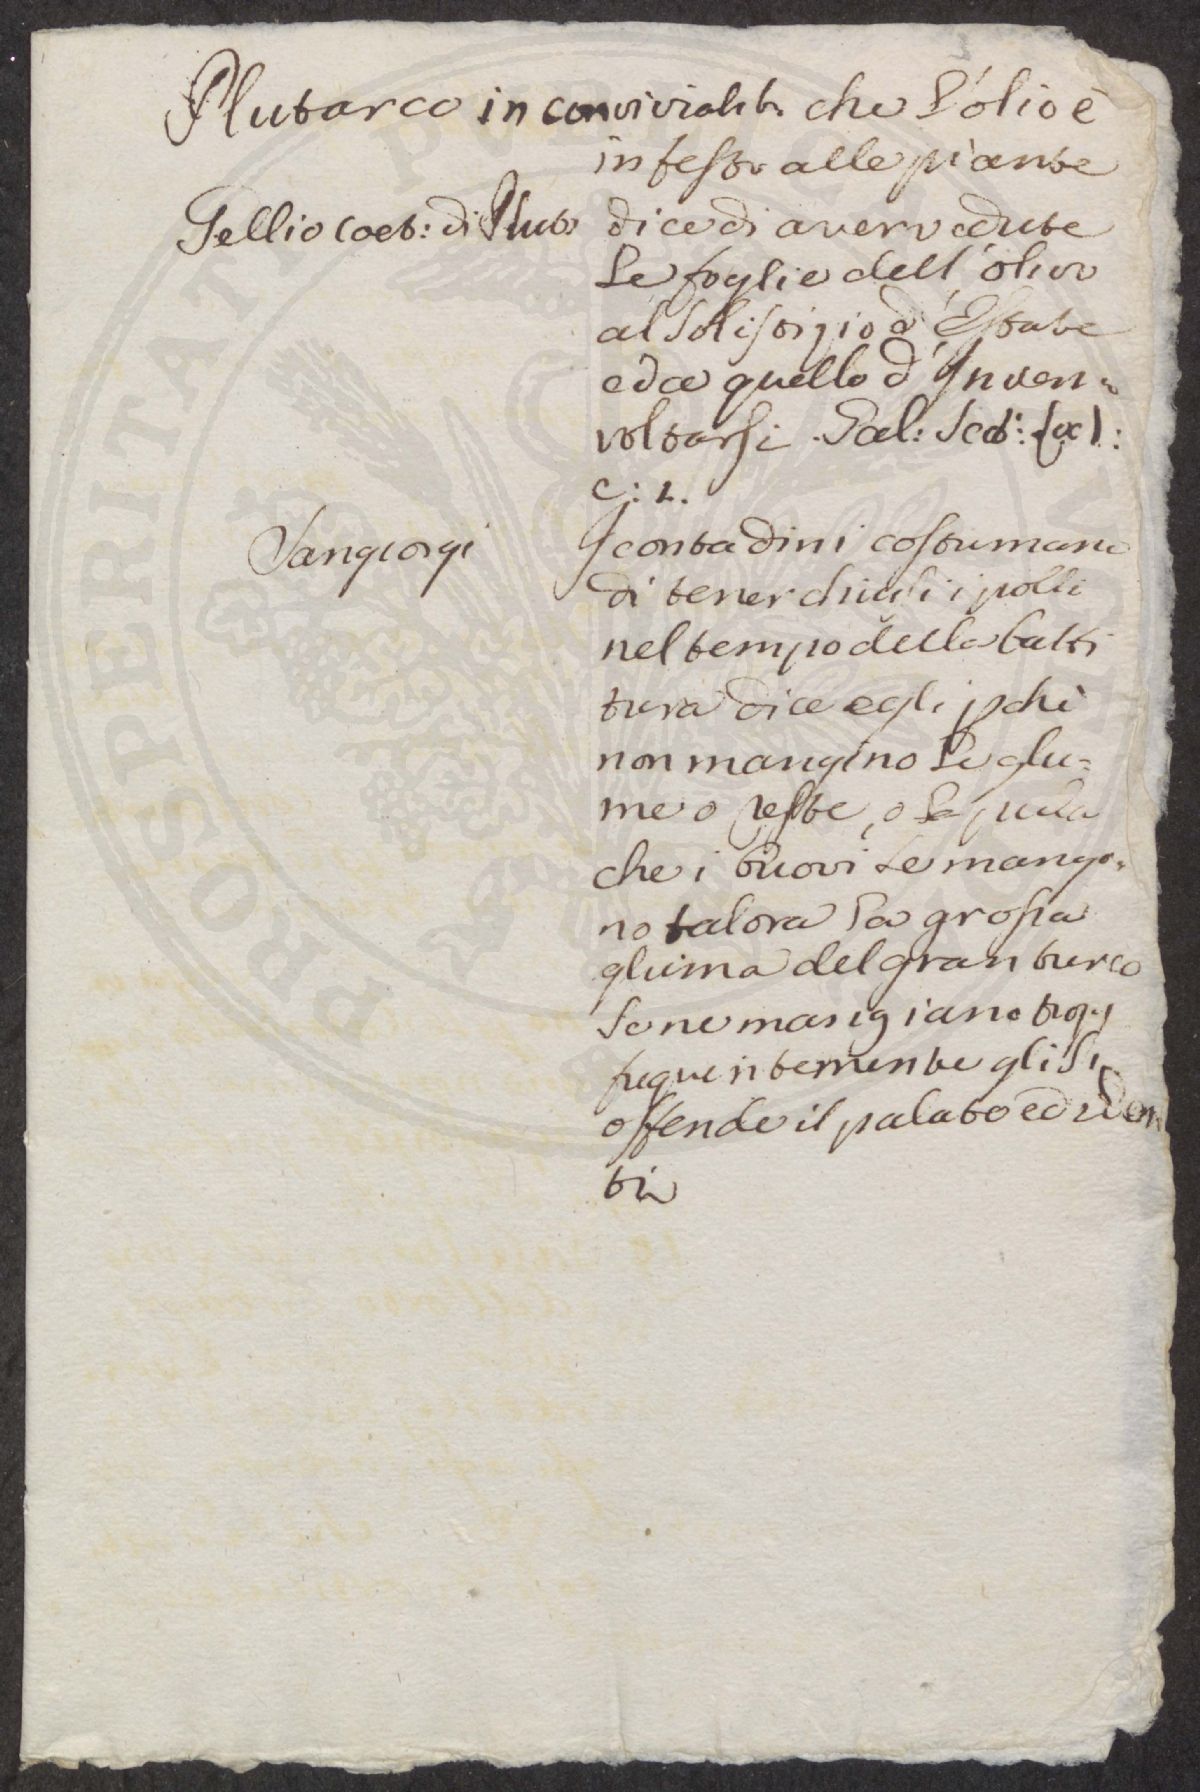 Plutarco in convivialib. che l'olio è
infesto alle piante
Gellio coet: di Plut. dice di aver vedute
le foglie dell'olivo
al solistizio d'Estate
ed a quello d'Inver=
voltarsi. Gal:
c: 2.
Sangiorgi I contadini costumano
di tener chiusi i polli
nel tempo della batti
tura dice egli pchè
non mangino le glu=
me o reste, o la pula
che i buovi se mangia=
no talora la grossa
gluma del gran turco
se ne mangiano trop
frequentemente gli si
offende il palato ed i den
ti
PROSPERITATI PUBLICAE